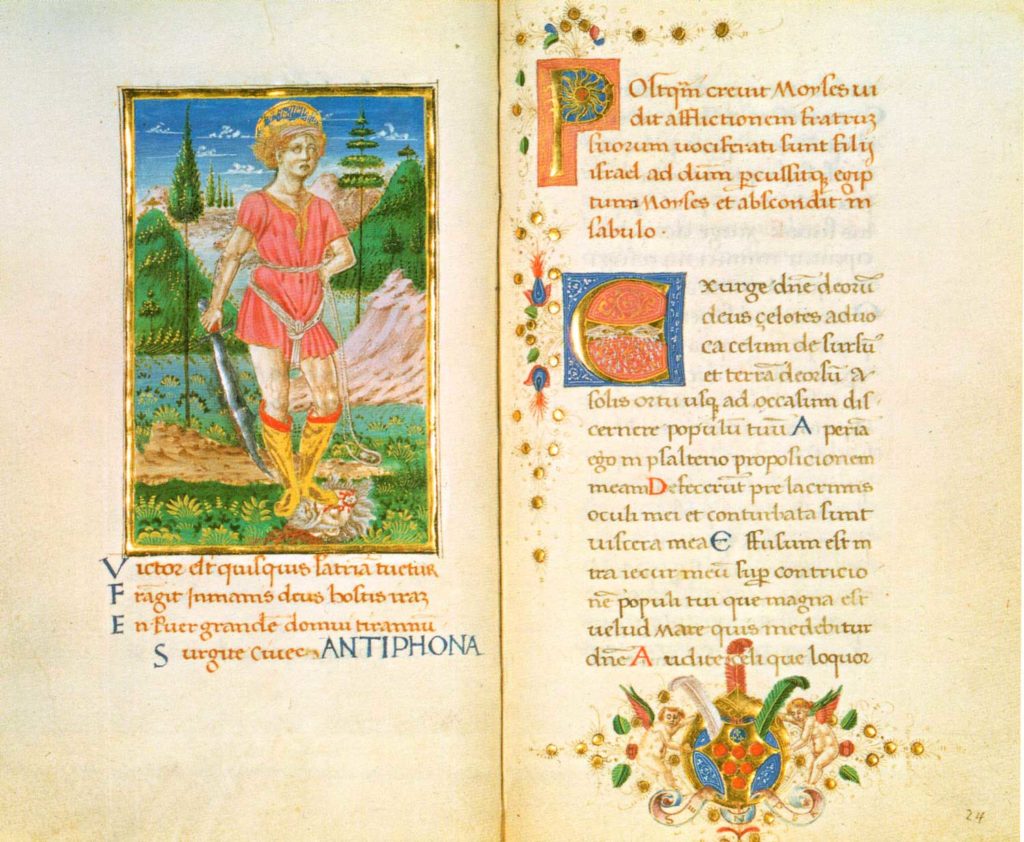 Victor est quisquis patriā tuetur
Fragit inmanis deus hostis iraz
En puer grandē domui tirannū
Surgite cives ANTIPHONA
POstqm̄ crevit Moyses vi
dit afflictionem fratruz
suorum vociferati sunt filij
israel ad dūm ꝑcussitqꝫ egip
tum Moyses et abscondit in
sabulo
Exurge dn̄e deorū
deus çelotes advo
ca celum de sursū
et terrā deorsū A
solis ortu usqꝫ ad occasum dis
cernere populū tuū A periā
ego in psalterio proposicionem
meam Defecerūt pre lacrimis
oculi mei et conturbata sunt
viscera mea E ffusum est in
tra iecur meū suꝑ contricio
nē populi tui que magna est
velud mare quis medebitur
dn̄e A udite celi que loquor
24